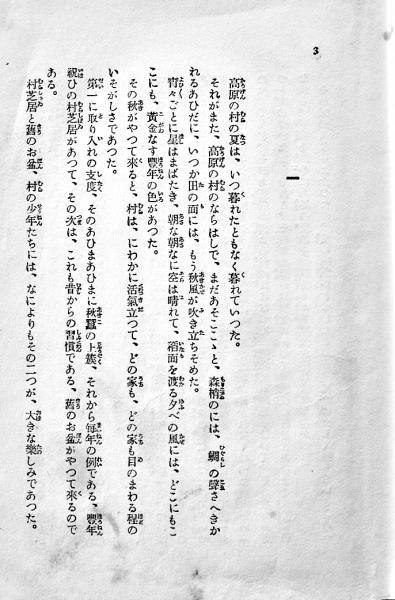 3
一
高原の村の夏は、いつ暮れたともなく暮れていつた。
それがまた、高原の村のならはしで、まだあそここゝと、森梢のには、蜩の聲さへきか
れるあひだに、いつか田の面には、もう秋風が吹き立ちそめた。
宵々ごとに星はまばたき、朝な朝なに空は晴れて、稻面を渡る夕べの風には、どこにもこ
こにも、黄金なす豐年の色があつた。
その秋がやつて來ると、村は、にわかに活氣立つて、どの家も、どの家も目のまわる程の
いそがしさであつた。
第一に取り入れの支度、そのあひまあひまに秋蠶の上簇、それから毎年の例である、豐年
祝ひの村芝居があつて、その次は、これも昔からの習慣である、舊のお盆がやつて來るので
ある。
村芝居と舊のお盆、村の少年たちには、なによりもその二つが、大きな樂しみであつた。